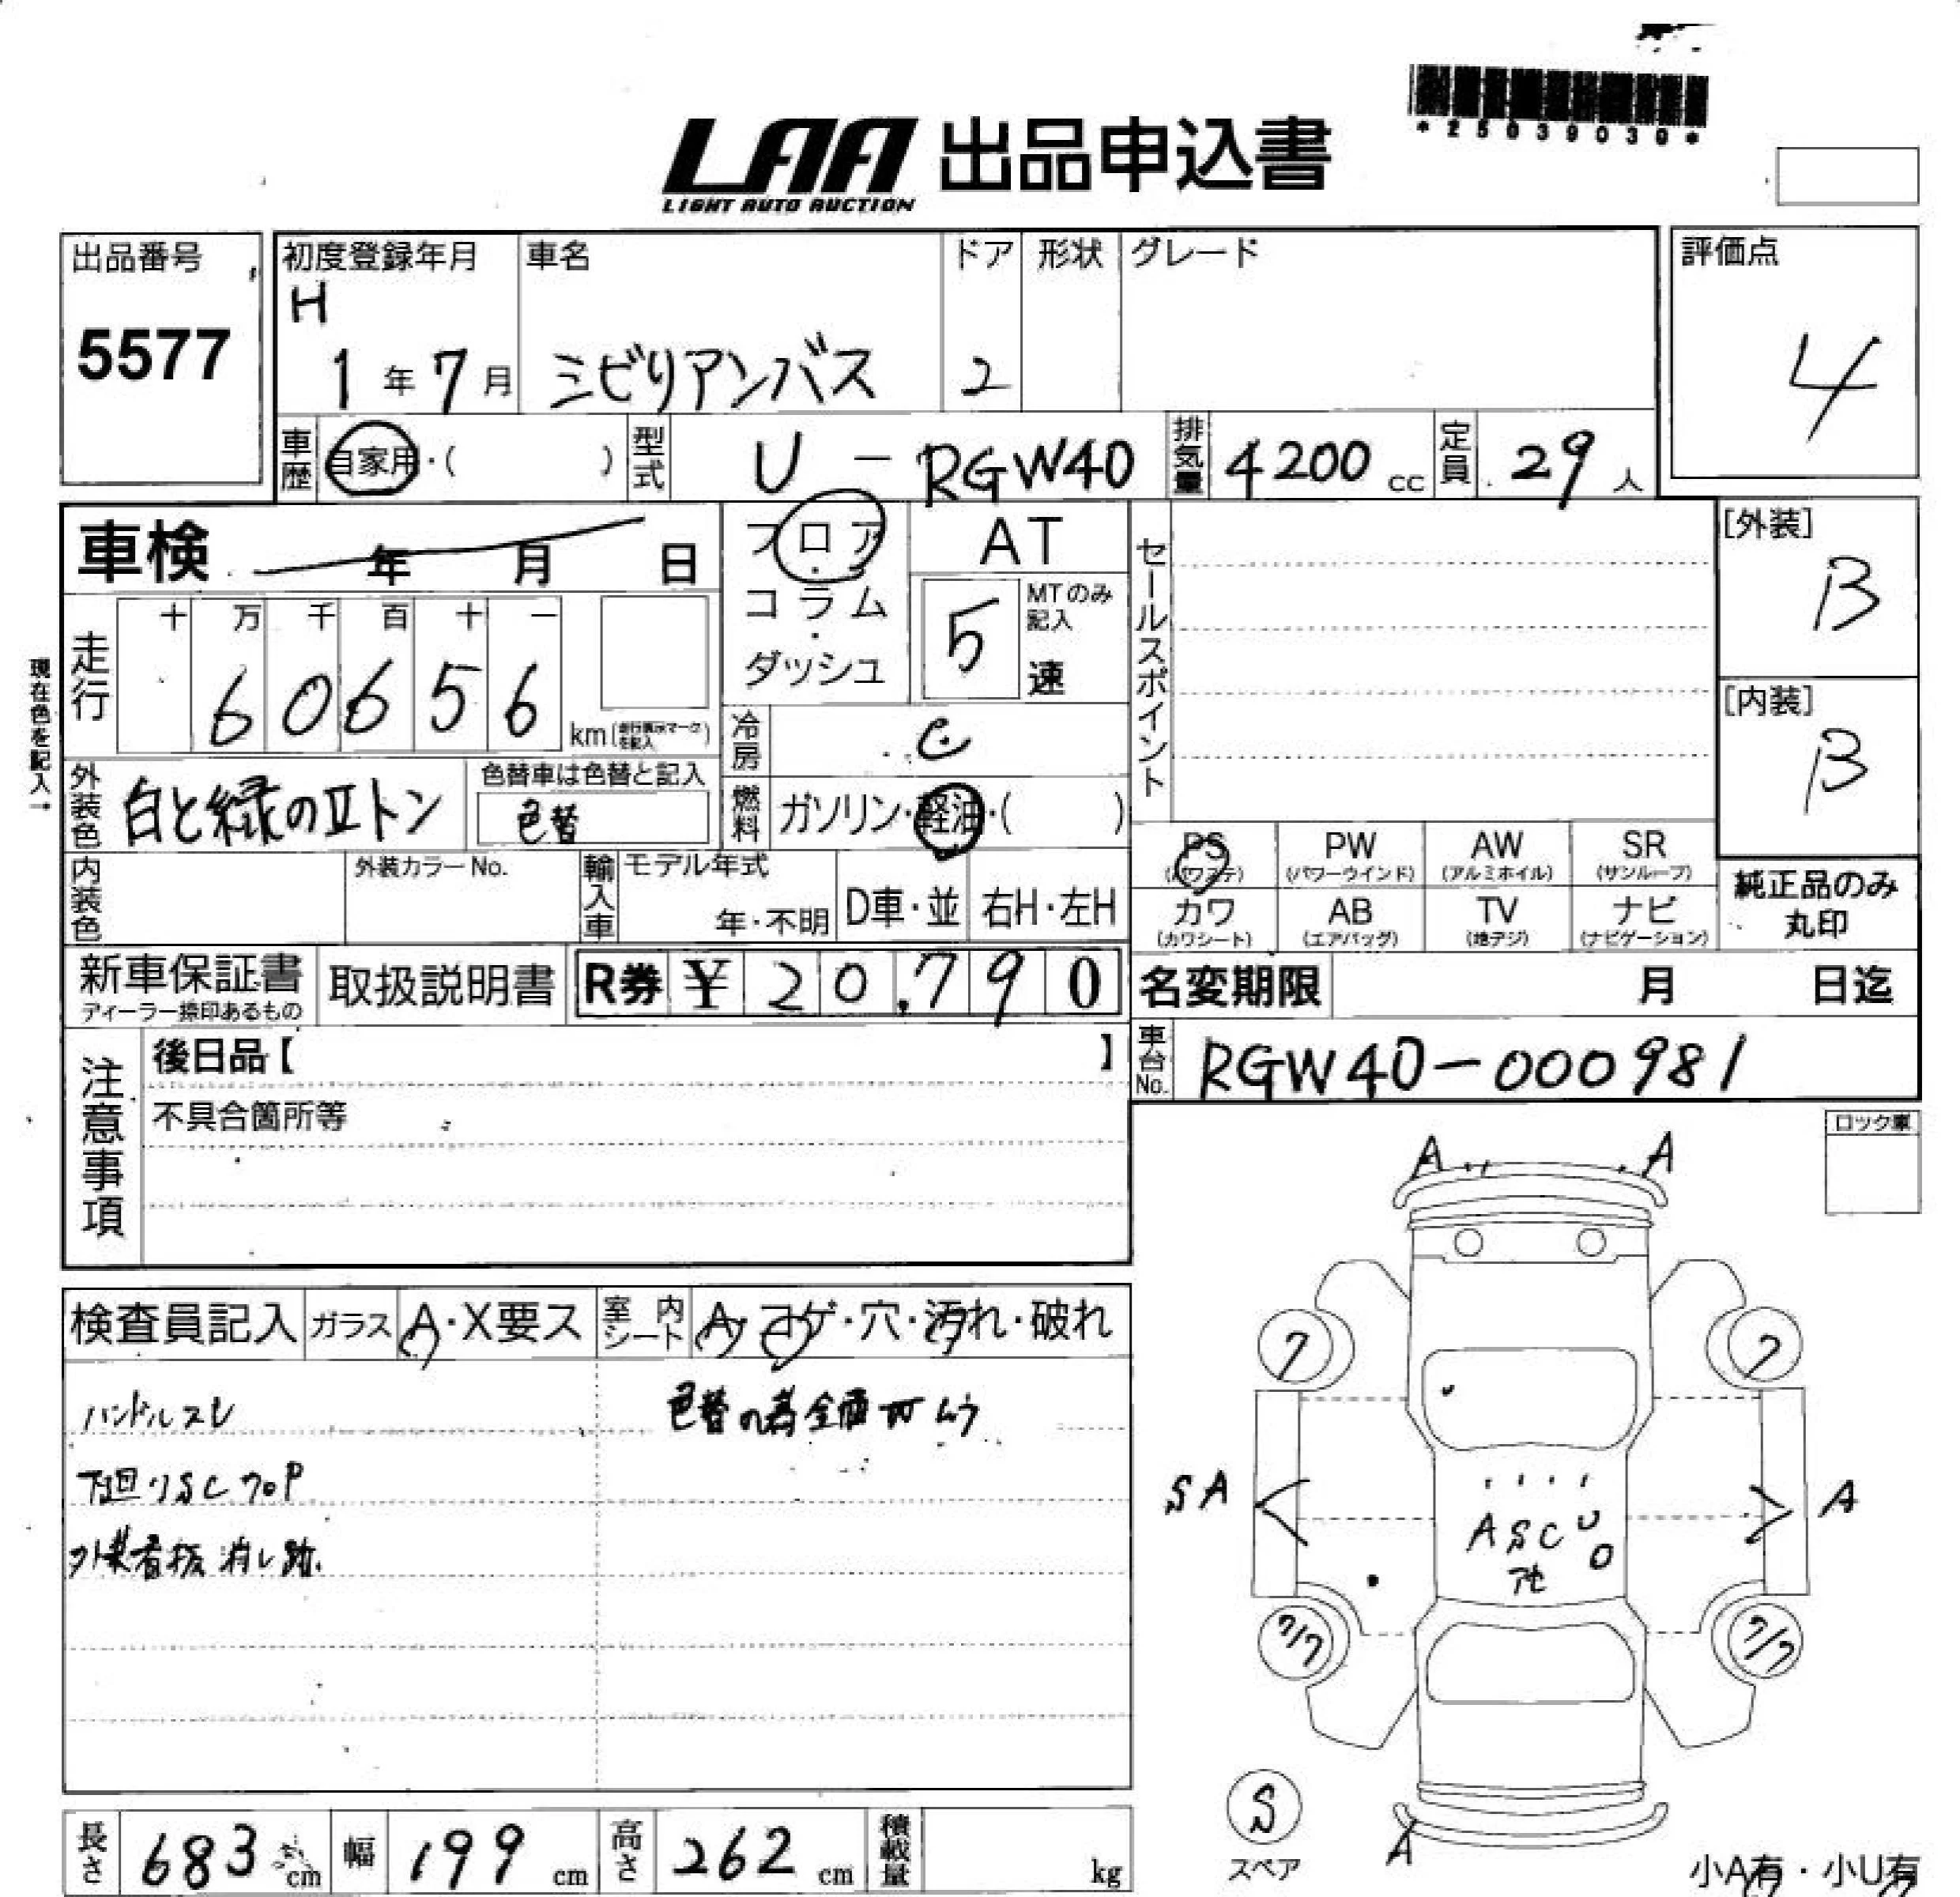 *25039030*
LAA 出品申込書
LIGHT AUTO AUCTION
出品番号
5577
初度登録年月
H
1年7月
車名
ミビリアンバス
ドア
2
形状
グレード
評価点
4
車歴 自家用・( )
型式 U-RGW40
排気量 4200cc
定員 29人
車検 年 月 日
フロア・コラム・ダッシュ
AT
5
MTのみ記入
速
セールスポイント
[外装]
B
[内装]
B
現在色を記入→
走行 十 万 千 百 十 一
60656
km
冷房
燃料 ガソリン・軽油・( )
外装色 白と緑のⅡトン
色替車は色替と記入
色替
内装色
外装カラーNo.
輸入車 モデル年式
年・不明
D車・並
右H・左H
PS (パワステ)
PW (パワーウインド)
AW (アルミホイル)
SR (サンルーフ)
カワ (カワシート)
AB (エアバッグ)
TV (地デジ)
ナビ (ナビゲーション)
純正品のみ丸印
新車保証書
ディーラー捺印あるもの
取扱説明書
R券 ¥20,790
名変期限 月 日迄
車台No. RGW40-000981
注意事項
後日品【 】
不具合箇所等
ロック車
検査員記入
ガラス A・X要ス
室内シート A・コゲ・穴・汚れ・破れ
ハンドルスレ
色替の為全面
下廻りSC
外装看板消し跡
A A
7 7
SA A
ASC U
7/7 7/7
S
スペア
A
長さ 683cm
幅 199cm
高さ 262cm
積載量 kg
小A有・小U有